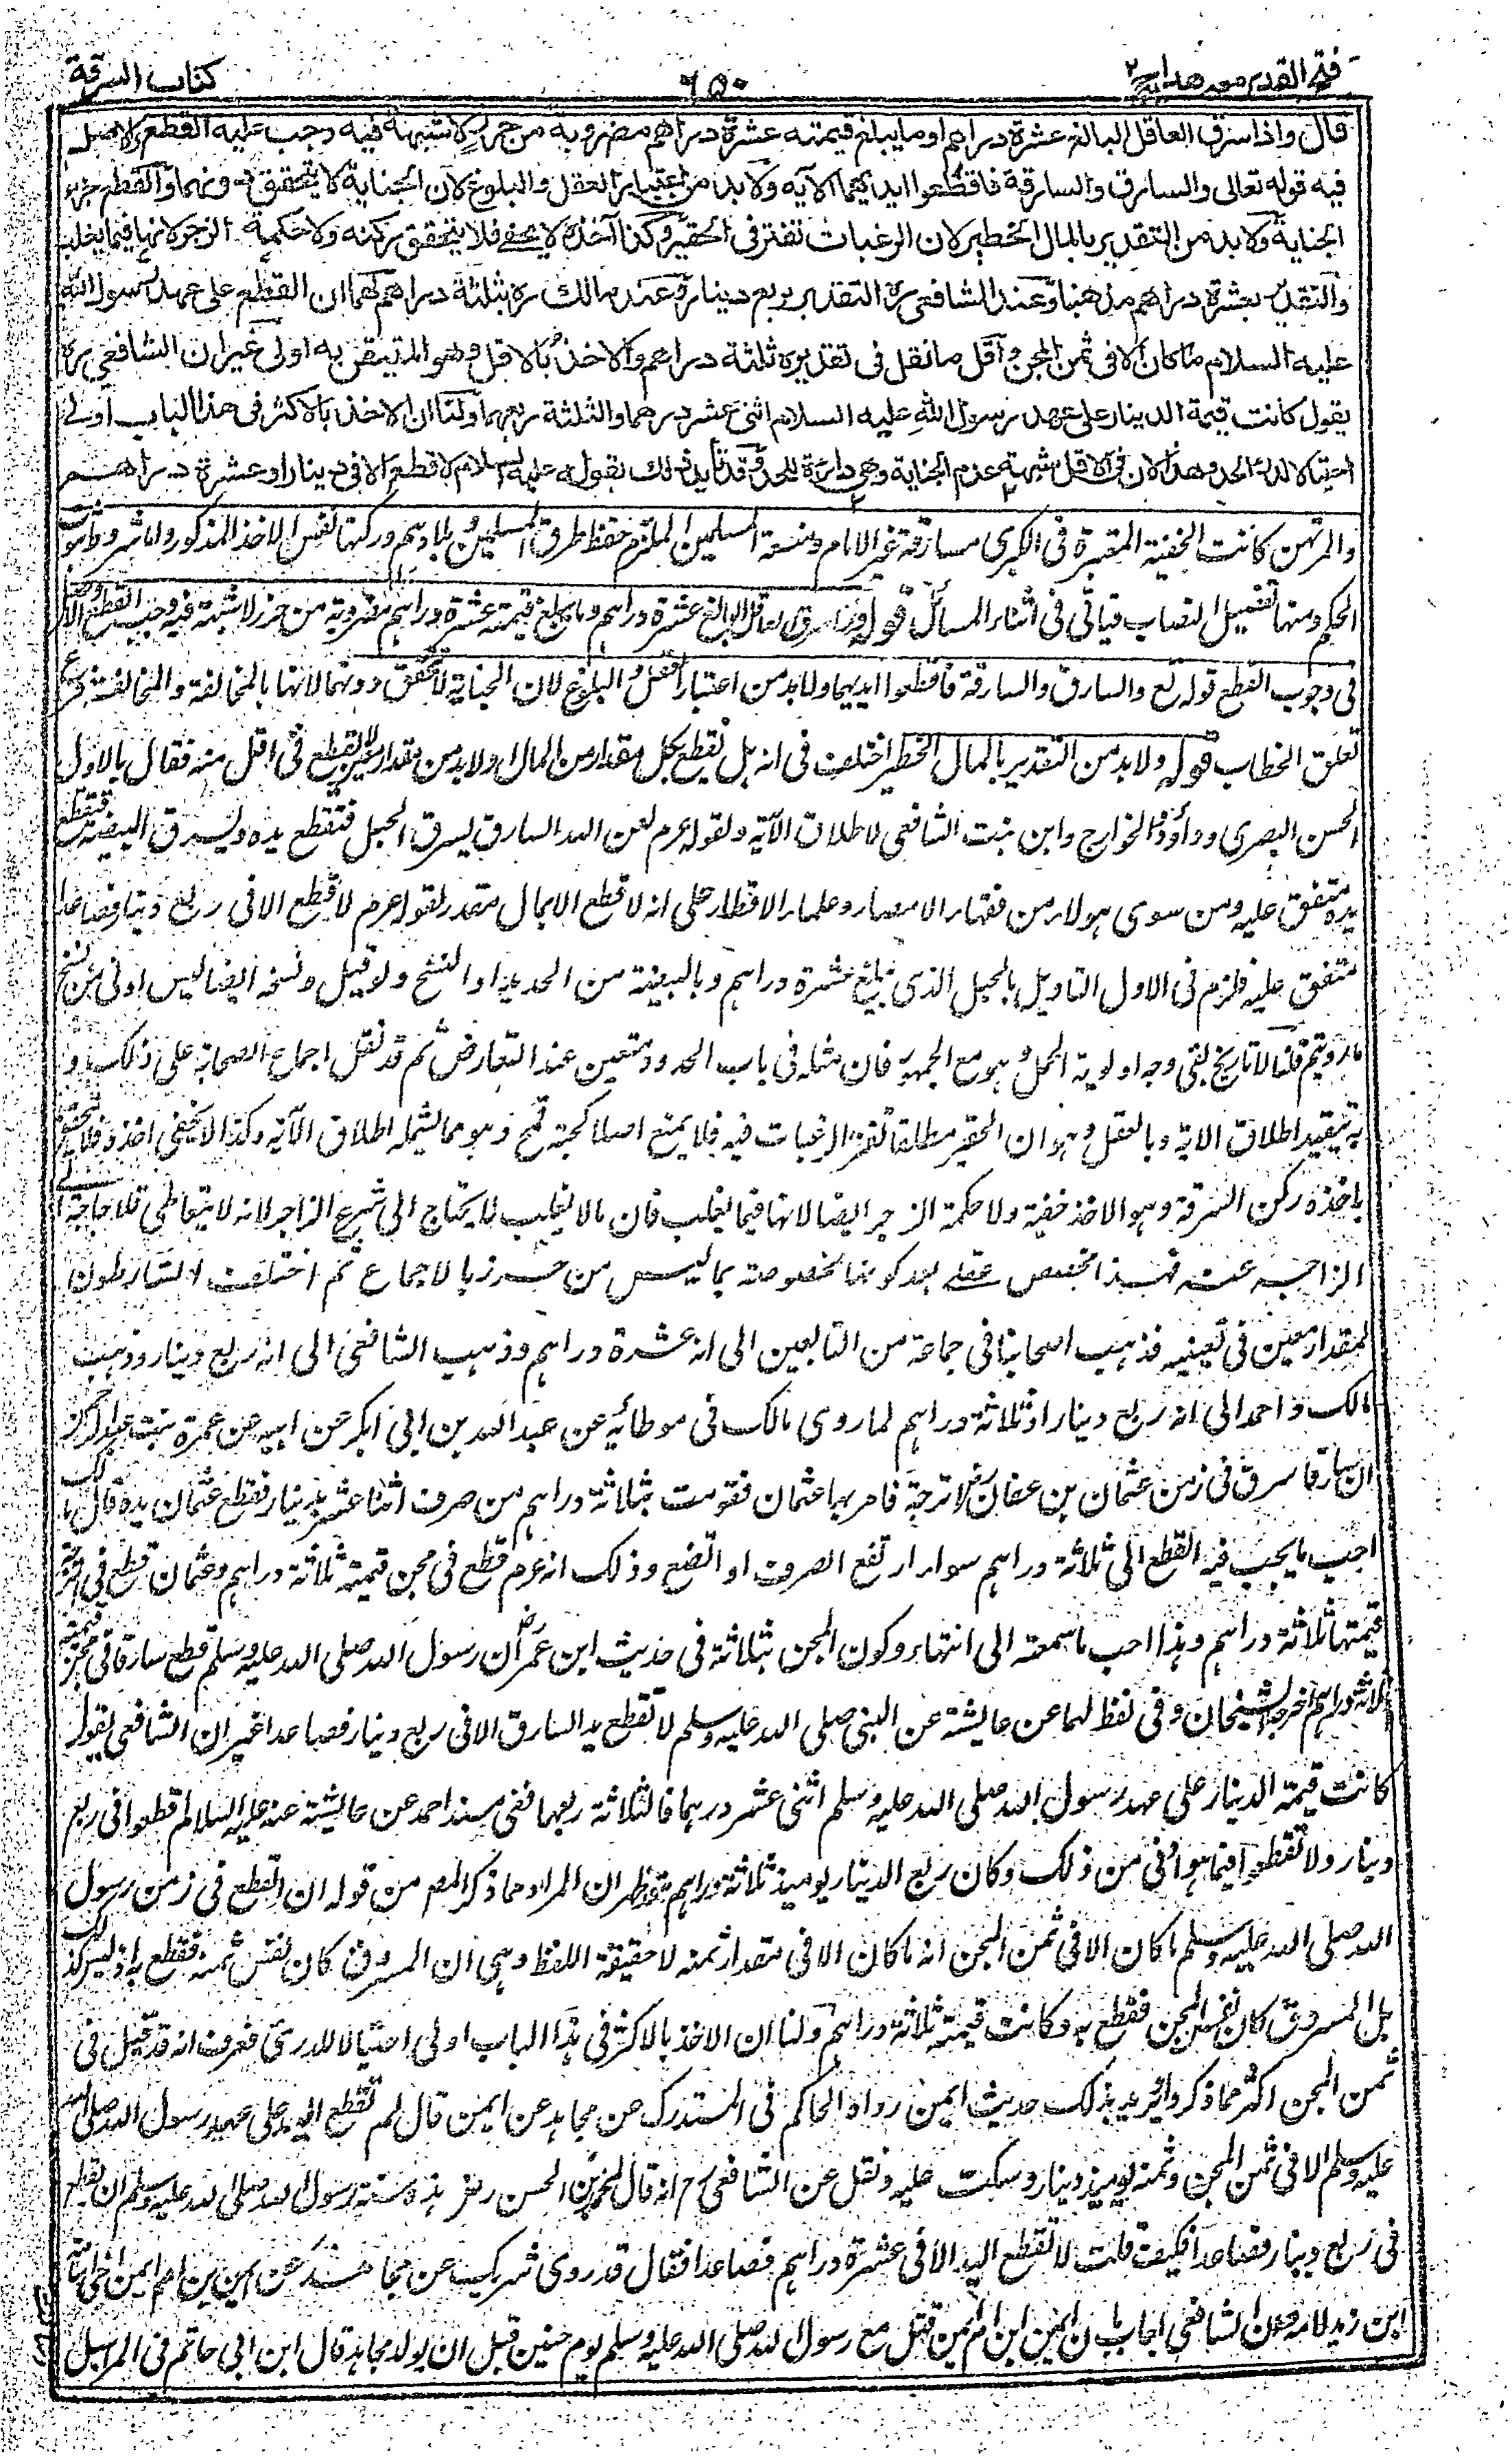 فتح القدير مع هدايه ج٢
٦٥٠
كتاب السرقة
قال واذا سرق العاقل البالغ عشرة دراهم او ما يبلغ قيمته عشرة دراهم مضروبة من حرز لا شبهة فيه وجب عليه القطع والاصل
فيه قوله تعالى والسارق والسارقة فاقطعوا ايديهما الآية ولا بد من اعتبار العقل والبلوغ لان الجناية لا يتحقق دونهما والقطع جزاء
الجناية ولا بد من التقدير بالمال الخطير لان الرغبات تفتر في الحقير وكذا اخذه لا يخفى فلا يتحقق ركنه ولا حكمة الزجر لانها فيما يغلب
والتقدير بعشرة دراهم مذهبنا وعند الشافعي ره التقدير بربع دينار وعند مالك ره بثلثة دراهم لهما ان القطع على عهد رسول الله
عليه السلام ما كان الا في ثمن المجن واقل ما نقل في تقديره ثلثة دراهم والاخذ بالاقل وهو المتيقن به اولى غير ان الشافعي ره
يقول كانت قيمة الدينار على عهد رسول الله عليه السلام اثنى عشر درهما والثلثة ربعها ولنا ان الاخذ بالاكثر في هذا الباب اولى
احتيالا لدرء الحد وهذا لان في الاقل شبهة عدم الجناية وهي دارئة للحد وقد تأيد ذلك بقوله عليه السلام لا قطع الا في دينار او عشرة دراهم
والمرتهن كانت الخفية المعتبرة في الكبرى مسارقة عين الامام ومنعة المسلمين الملتزم حفظ طرق المسلمين وبلادهم وركنها نفس الاخذ المذكور واما شروط ثبوت
الحكم ومنها تفصيل النصاب فيأتي في اثناء المسائل قوله واذا سرق العاقل البالغ عشرة دراهم وما يبلغ قيمته عشرة دراهم مضروبة من حرز لا شبهة فيه وجب القطع والاصل
في وجوب القطع قوله تع والسارق والسارقة فاقطعوا ايديهما ولا بد من اعتبار العقل والبلوغ لان الجناية لا تتحقق دونهما لانها بالمخالفة والمخالفة فرع
تعلق الخطاب قوله ولا بد من التقدير بالمال الخطير اختلف في انه هل تقطع بكل مقدار من المال او لا بد من مقدار معين لا يقطع في اقل منه فقال بالاول
الحسن البصري وداؤد والخوارج وابن بنت الشافعي لاطلاق الآية ولقوله عم لعن الله السارق يسرق الحبل فتقطع يده ويسرق البيضة فتقطع
يده متفق عليه ومن سوى هولاء من فقهاء الامصار وعلماء الاقطار على انه لا قطع الا بمال مقدر لقوله عم لا قطع الا في ربع دينار فصاعدا
متفق عليه فلزم في الاول التاويل بالحبل الذي يبلغ عشرة دراهم وبالبيضة من الحديد او النسخ ولو قيل ونسخه ايضا ليس اولى من نسخ
ما رويتم قلنا لا تاريخ بقي وجه اولوية الحمل وهو مع الجمهور فان مثله في باب الحدود متعين عند التعارض ثم قد نقل اجماع الصحابة على ذلك و
به يتقيد اطلاق الاية وبالعقل وهو ان الحقير مطلقا تفتر الرغبات فيه فلا يمنع اصلا كحبة قمح وهو مما يشمله اطلاق الآية وكذا لا يخفى اخذه فلا يتحقق
باخذه ركن السرقة وهو الاخذ خفية ولا حكمة الزجر ايضا لانها فيما يغلب فان ما لا يغلب لا يحتاج الى شرع الزاجر لانه لا يتعاطى فلا حاجة الى
الزاجر عنه فهذا مخصص عقلي بعد كونها مخصوصة بما ليس من حرز بالاجماع ثم اختلف الشارطون
لمقدار معين في تعيينه فذهب اصحابنا في جماعة من التابعين الى انه عشرة دراهم وذهب الشافعي الى انه ربع دينار وذهب
مالك واحمد الى انه ربع دينار او ثلاثة دراهم لما روى مالك في موطائه عن عبد الله بن ابي بكر عن ابيه عن عمرة بنت عبد الرحمن
ان سارقا سرق في زمن عثمان بن عفان رض اترجة فامر بها عثمان فقومت بثلاثة دراهم من صرف اثنا عشر بدينار فقطع عثمان يده قال مالك
احب ما يجب فيه القطع الى ثلاثة دراهم سواء ارتفع الصرف او اتضع وذلك انه عم قطع في مجن قيمته ثلاثة دراهم وعثمان قطع في اترجة
قيمتها ثلاثة دراهم وهذا احب ما سمعته الى انتهاء وكون المجن بثلاثة في حديث ابن عمر رض ان رسول الله صلى الله عليه وسلم قطع سارقا في مجن قيمته
ثلاثة دراهم اخرجه الشيخان وفي لفظ لهما عن عايشة عن النبي صلى الله عليه وسلم لا تقطع يد السارق الا في ربع دينار فصاعدا غير ان الشافعي يقول
كانت قيمة الدينار على عهد رسول الله صلى الله عليه وسلم اثنى عشر درهما فالثلاثة ربعها ففي مسند احمد عن عايشة عنه عليه السلام اقطعوا في ربع
دينار ولا تقطعوا فيما هو ادنى من ذلك وكان ربع الدينار يومئذ ثلاثة دراهم فظهر ان المراد مما ذكر المص من قوله ان القطع في زمن رسول
الله صلى الله عليه وسلم ما كان الا في ثمن المجن انه ما كان الا في مقدار ثمنه لا حقيقة اللفظ وهي ان المسروق كان نفس ثمنه فقطع به اذ ليس كذلك
بل المسروق كان نفس المجن فقطع به وكانت قيمته ثلاثة دراهم ولنا ان الاخذ بالاكثر في هذا الباب اولى احتيالا للدرئ فعرف انه قد قيل في
ثمن المجن اكثر مما ذكر وايريد بذلك حديث ايمن رواه الحاكم في المستدرك عن مجاهد عن ايمن قال لم تقطع اليد على عهد رسول الله صلى الله
عليه وسلم الا في ثمن المجن وثمنه يومئذ دينار وسكت عليه ونقل عن الشافعي رح انه قال لمحمد بن الحسن رض هذه سنة رسول الله صلى الله عليه وسلم ان يقطع
في ربع دينار فصاعدا فكيف قلت لا تقطع اليد الا في عشرة دراهم فصاعدا فقال قد روى شريك عن مجاهد عن ايمن بن ام ايمن اخي اسامة
ابن زيد لامه وان الشافعي اجاب بان ايمن ابن ام ايمن قتل مع رسول الله صلى الله عليه وسلم يوم حنين قبل ان يولد مجاهد قال ابن ابي حاتم في المراسيل